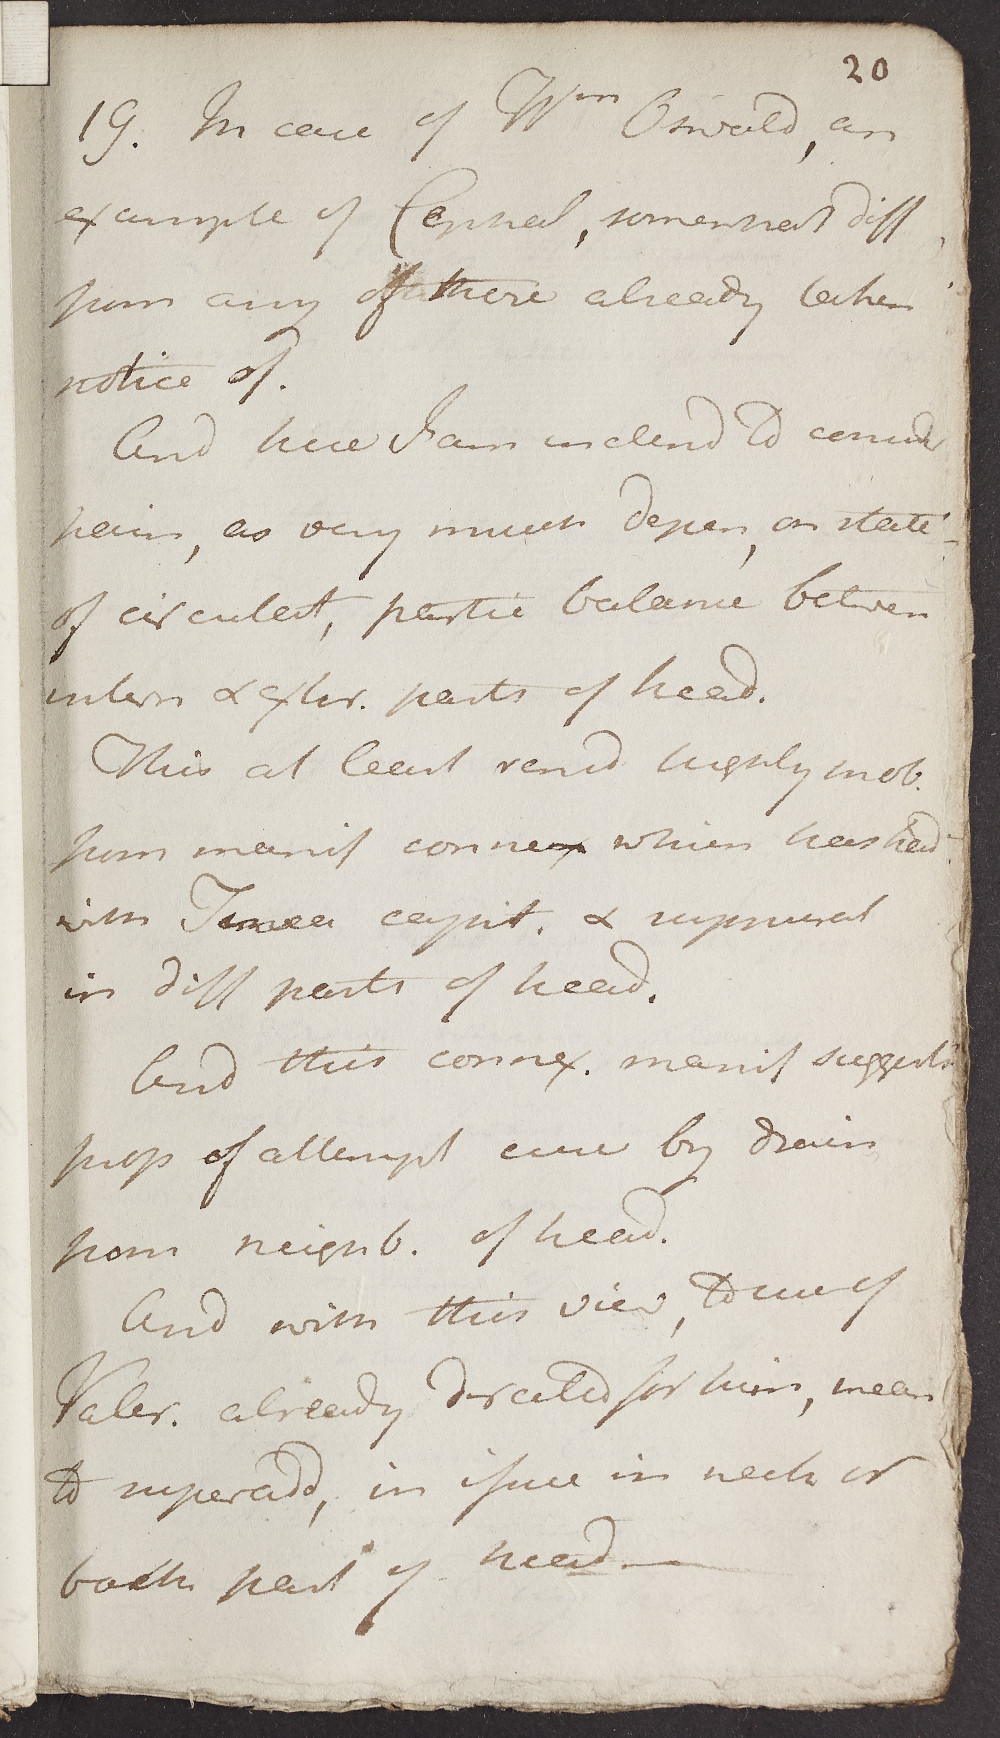 20
19. In case of Wm Oswald, an
example of Cephal, somewhat diff
from any of these already taken
notice of.
And here I am inclend to consider
pain, as very much depen, on state
of circulat, partic balance between
intern & exter. parts of head.
This at least rend highly prob.
from manif connex which has had
with Tinea capit. & suppurat
in diff parts of head.
And this connex. manif suggests
prop of attempt cure by drain
from neighb. of head.
And with this view, to use of
Valer. already directed for him, mean
to superadd, in issue in neck or
back part of head